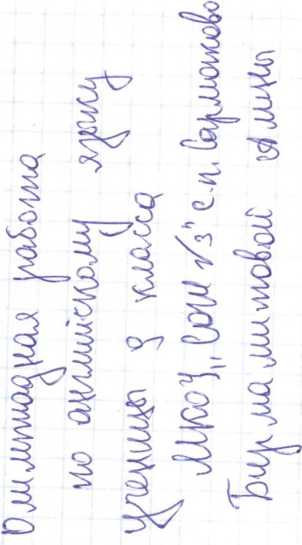 Олимпиадная работа
по английскому языку
ученицы 9 класса
МКОУ „СОШ №3" с.п. Сармаково
Бирмамитовой Амины